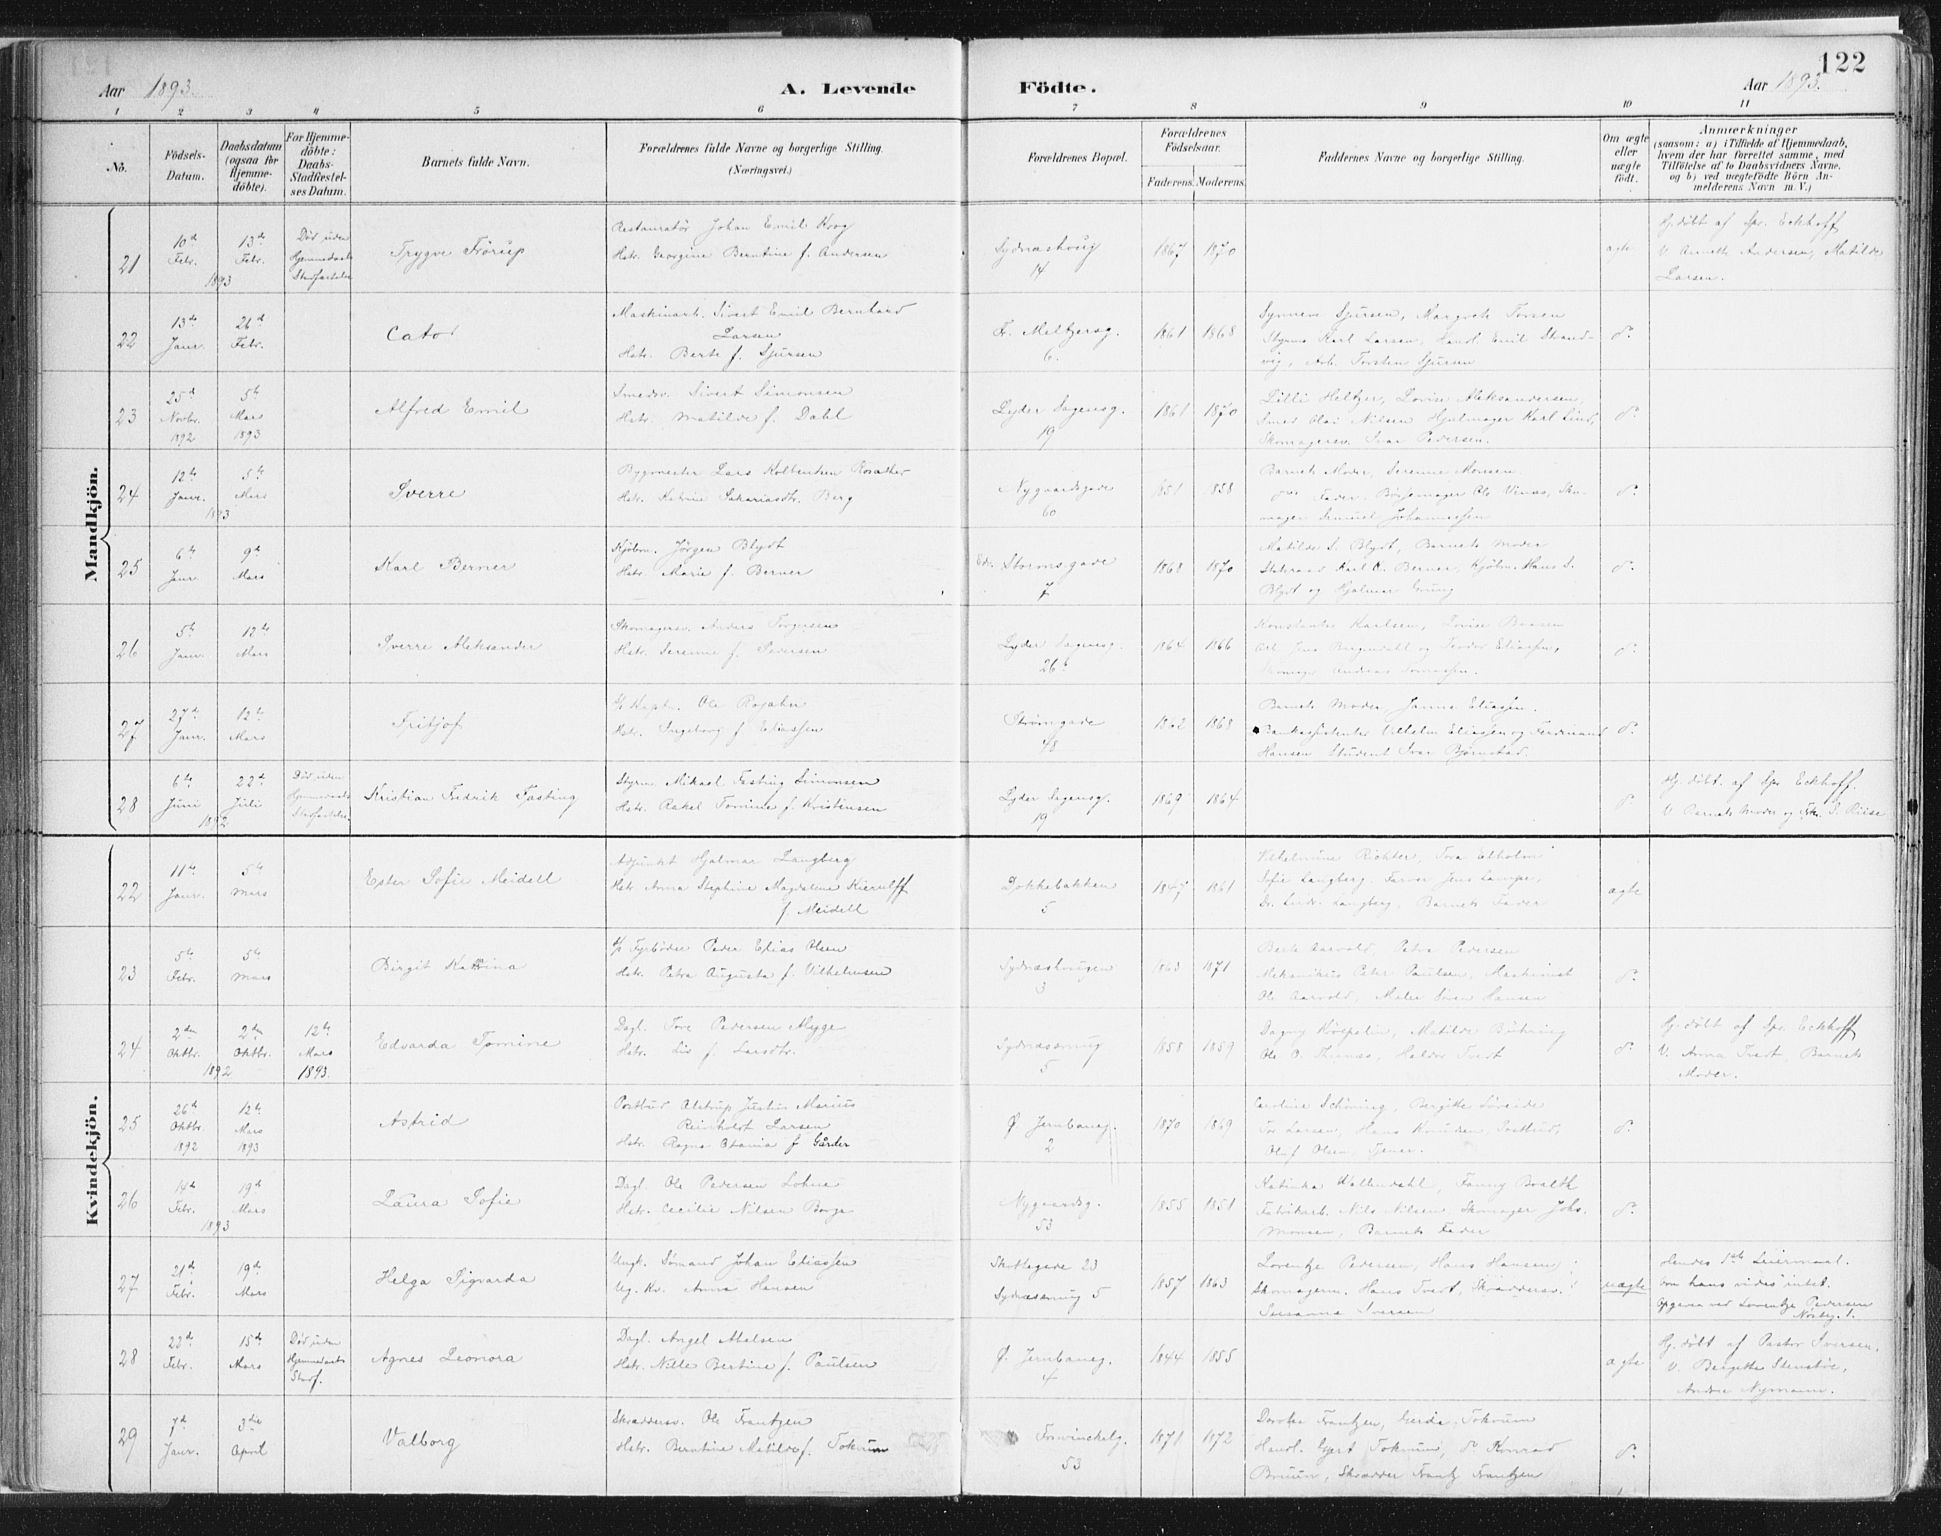 122
Aar 1893.
A. Levende Födte.
Aar 1893.
1 2 3 4 5 6 7 8 9 10 11
No.
Födsels-Datum.
Daabsdatum (ogsaa for Hjemmedöbte).
For Hjemmedöbte: Daabs-Stadfæstelses Datum.
Barnets fulde Navn.
Forældrenes fulde Navne og borgerlige Stilling. (Næringsvei.)
Forældrenes Bopæl.
Forældrenes Födselsaar.
Faderens. Moderens.
Faddernes Navne og borgerlige Stilling.
Om ægte eller uægte födt.
Anmærkninger (saasom: a) i Tilfælde af Hjemmedaab, hvem der har forrettet samme, med Tilföielse af to Daabsvidners Navne, og b) ved uægtefödte Börn Anmelderens Navn m. V.)
Mandkjön.
21
10d Febr.
13de Febr.
1893
Död uden Hjemmedaabs Stadfæstelse
Trygve Frörup
Restauratör Johan Emil Krog
Hstr. Georgine Berntine f. Andersen
Sydnæshaug
14
1867 1870
ægte
Hj. döbt af Spr. Eckhoff
V. Andersen, Matilde
Larsen.
22
13de Janr.
26d Febr.
Cato
Maskinarb. Sivert Emil Bernhard
Larsen
Hstr. Berte f. Sjursen
Fr. Meltzersg.
6.
1861 1868
Synneve Sjursen, Margrete Torsen
Styrm. Karl Larsen, Handl. Emil Strand-
vig, Arb. Torsten Sjursen
do.
23
25d Novbr. 1892
5te Mars 1893
Alfred Emil
Smedsv. Sivert Simonsen
Hstr. Matilde f. Dahl
Lyder Sagensg.
19
1861 1870
Lilli Heltzer, Lovise Aleksandersen,
Smed Olai Nilsen Hjulmager Karl Lind,
Skomagersv. Ivar Pedersen.
do.
24
12te Janr.
5te Mars
1893
Sverre
Bygmester Lars Kolbentsen
Hstr. Katrine Sakariasdtr. Berg
Nygaardsgade
60
1851 1858
Barnets Moder, Serenne Monsen
Fader, Ole Vinæs, Sko-
mager Johannessen
do.
25
6te Janr.
9de Mars
Karl Berner
Kjöbm. Jörgen Blydt
Hstr. Marie f. Berner
Edv. Stormsgade
7
1868 1870
Matilde S. Blydt, Barnets Moder
Statsraad Karl C. Berner, Kjöbm. Hans S.
Blydt og Hjalmar Grung
do.
26
5te Janr.
12te Mars
Sverre Aleksander
Skomagersv. Anders Torgersen
Hstr. Serenne f. Pedersen
Lyder Sagensg.
26b
1864 1866
Konstanse Karlsen, Lovise Boasen
Arb. Jens Bergendahl og Teodor Eliassen,
Skomager Andreas Tomassen.
do.
27
27d Janr.
12te Mars
Fritjof
Kapt. Ole
Hstr. Ingeborg f. Eliassen
Strömgade
48
1862 1868
Barnets Moder, Janna Eliassen.
Bankassistenter Vilhelm Eliassen og Ferdinand
Hansen Student Ivar Bjørnstad.
do.
28
6te Juni
22d Juli
1892
Död uden Hjemmedaabs Stadfæstelse.
Kristian Fredrik Fasting
Styrm. Mikael Fasting Simonsen
Hstr. Rakel Tomine f. Kristensen
Lyder Sagensg.
19
1869 1864
do
Hj. döbt af Spr. Eckhoff.
V. Barnets Moder og Frk. S. Riise
Kvindekjön.
22
11te Janr.
5te Mars
Ester Sofie Meidell
Adjunkt Hjalmar Langberg
Hstr. Anna Stephine Magdalena Kierulff
f. Meidell
Dokkebakken
5
1847 1861
Vilhelmine Richter, Tora Elholm
Sofie Langberg. Farver Jens Lampe,
Dr. Ludv. Langberg, Barnets Fader
ægte
23
5te Febr.
5te Mars
Birgit Katrina
Fyrböder Peder Elias Olsen
Hstr. Petra Augusta f. Vilhelmsen
Sydnæshaugen
3
1863 1871
Berte Aarvold, Petra Pedersen
Mekanikus Peter Paulsen, Maskinist
Ole Aarvold, Maler Sören Hansen
do.
24
2den Oktbr.
2den Oktbr.
1892
12te Mars 1893.
Edvarda Tomine
Dagl. Tore Pedersen Mygge
Hstr. Liv f. Larsdtr.
Sydnæssmug
5
1858 1859
Dagny Köepelin, Matilde Bühring
Ole O. Thunæs, Haldor Tvedt
do.
Hj. döbt af Spr. Eckhoff
V. Anna Tvedt, Barnets
Moder.
25
26d Oktbr 1892
12te Mars 1893
Astrid
Postbud Alstrup Justin Marius
Reinholdt Larsen
Hstr. Ragna Otania f. Gårder
Ø. Jernbaneg.
2
1870 1869
Caroline Schöning, Bergitte Söreide
Tor Larsen, Hans Knudsen, Postbud,
Oluf Olsen, Tjener.
do.
26
14de Febr.
19de Mars
1893
Laura Sofie
Dagl. Ole Pedersen Lohne
Hstr. Cecilie Nilsen Borge
Nygaardsg.
53
1855 1851
Katinka Wallendahl, Fanny Bralth
Fabrikarb. Nils Nilsen, Skomager Johs.
Monsen, Barnets Fader
do.
27
21d Febr.
19de Mars
Helga Sigvarda
Ungk. Sömand Johan Eliassen
Ug. Kv. Anna Hansen
Skottegade 23
Sydnæssmug 5
1857 1863
Lorentze Pedersen, Hans Hansen,
Skomagerm. Hans Tvedt, Skræddersv.
Susanna Iversen
uægte
Hendes 1ste Leiermaal.
om hans vides intet.
Opgivn ved Lorentze Pedersen
28
22d Febr.
15de Mars
Död uden Hjemmedaabs Stadf.
Agnes Leonora
Dagl. Angel Abelsen
Hstr. Nille Bertine f. Paulsen
Ø. Jernbaneg.
4
1844 1855
ægte
Hj. döbt af Pastor Iversen.
V. Bergitte Stensöe,
Andrea Nymann.
29
7d Janr.
3die April
Valborg
Skræddersv. Ole Frantzen
Hstr. Berntine Matilde f. Tokrum
Forvinckelg.
53
1871 1872
Dorotea Frantzen, Gerda Tokrum
Handl. Gjert Tokrum, do Konrad
Bruun, Skrædder Frantz Frantzen
do.